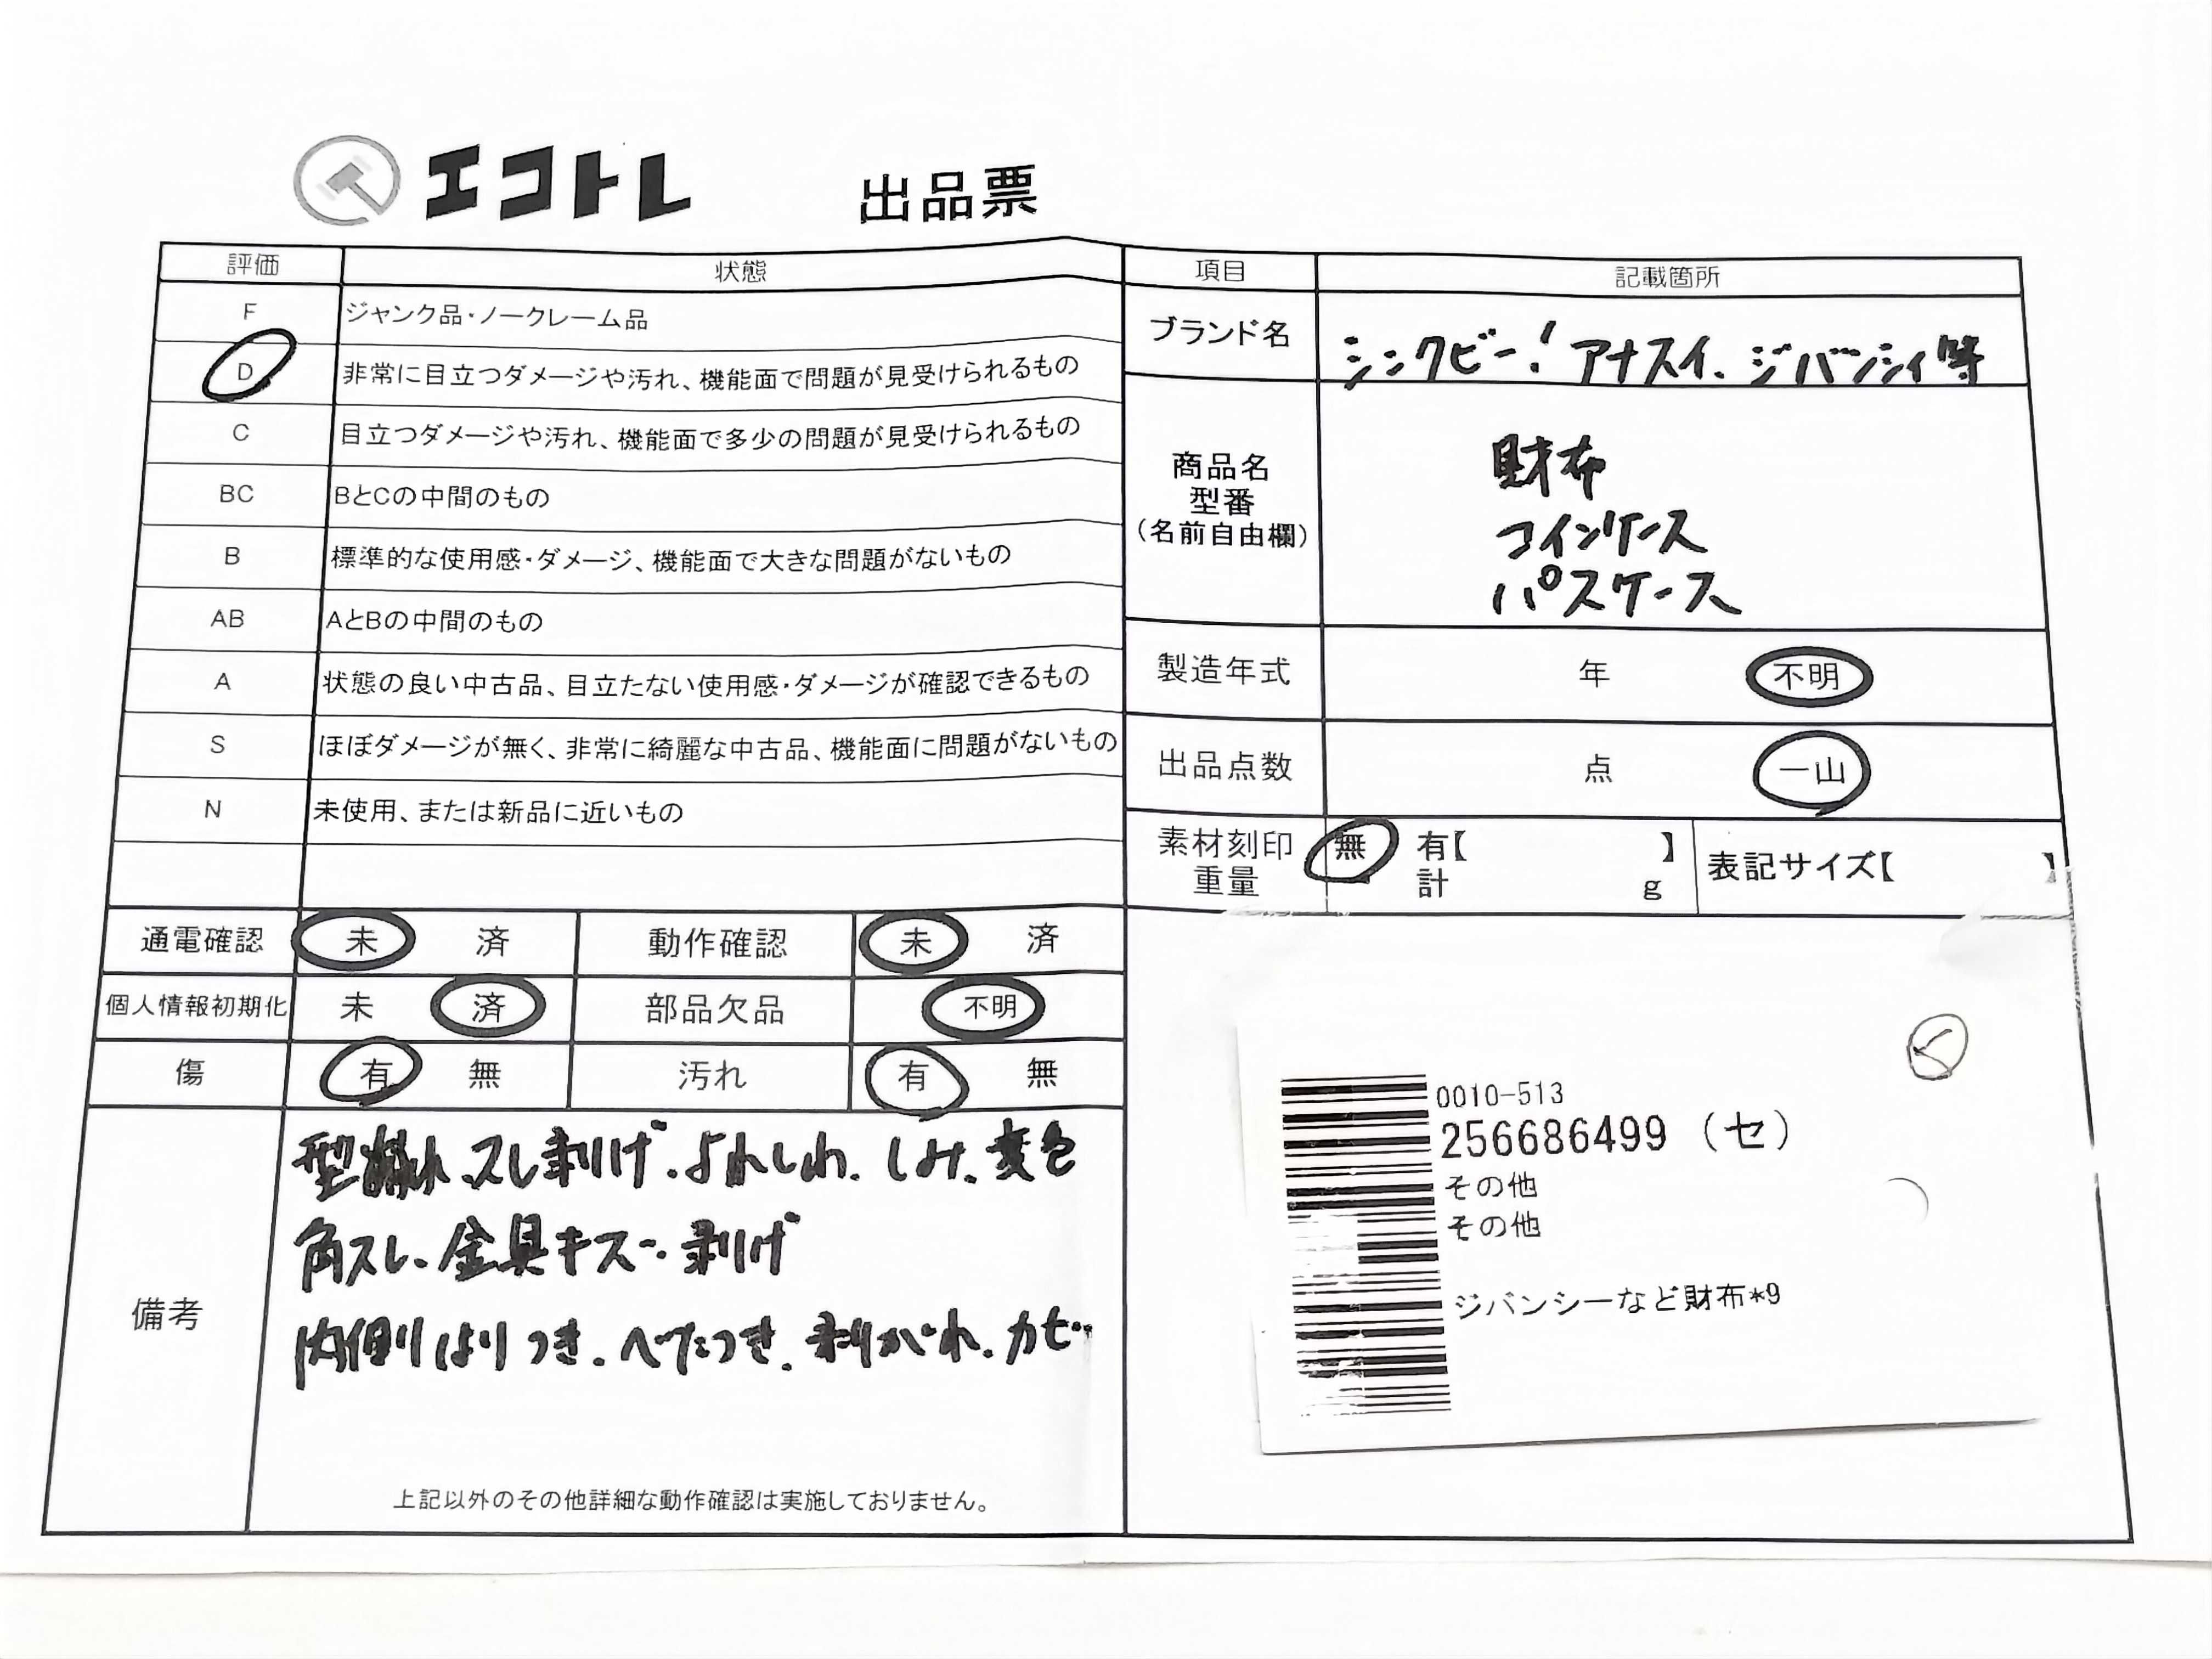 エコトレ 出品票
評価 状態
F ジャンク品・ノークレーム品
D 非常に目立つダメージや汚れ、機能面で問題が見受けられるもの
C 目立つダメージや汚れ、機能面で多少の問題が見受けられるもの
BC BとCの中間のもの
B 標準的な使用感・ダメージ、機能面で大きな問題がないもの
AB AとBの中間のもの
A 状態の良い中古品、目立たない使用感・ダメージが確認できるもの
S ほぼダメージが無く、非常に綺麗な中古品、機能面に問題がないもの
N 未使用、または新品に近いもの
通電確認 未 済 動作確認 未 済
個人情報初期化 未 済 部品欠品 不明
傷 有 無 汚れ 有 無
備考
型崩れ、スレ剥げ、よれしわ、しみ、変色
角スレ、金具キズ、剥げ
内側はりつき、べたつき、剥がれ、カビ
上記以外のその他詳細な動作確認は実施しておりません。
項目 記載箇所
ブランド名 シンクビー!アナスイ、ジバンシィ等
商品名
型番
(名前自由欄)
財布
コインケース
パスケース
製造年式 年 不明
出品点数 点 一山
素材刻印 無 有【 】
重量 計 g
表記サイズ【 】
0010-513
256686499 (セ)
その他
その他
ジバンシーなど財布*9